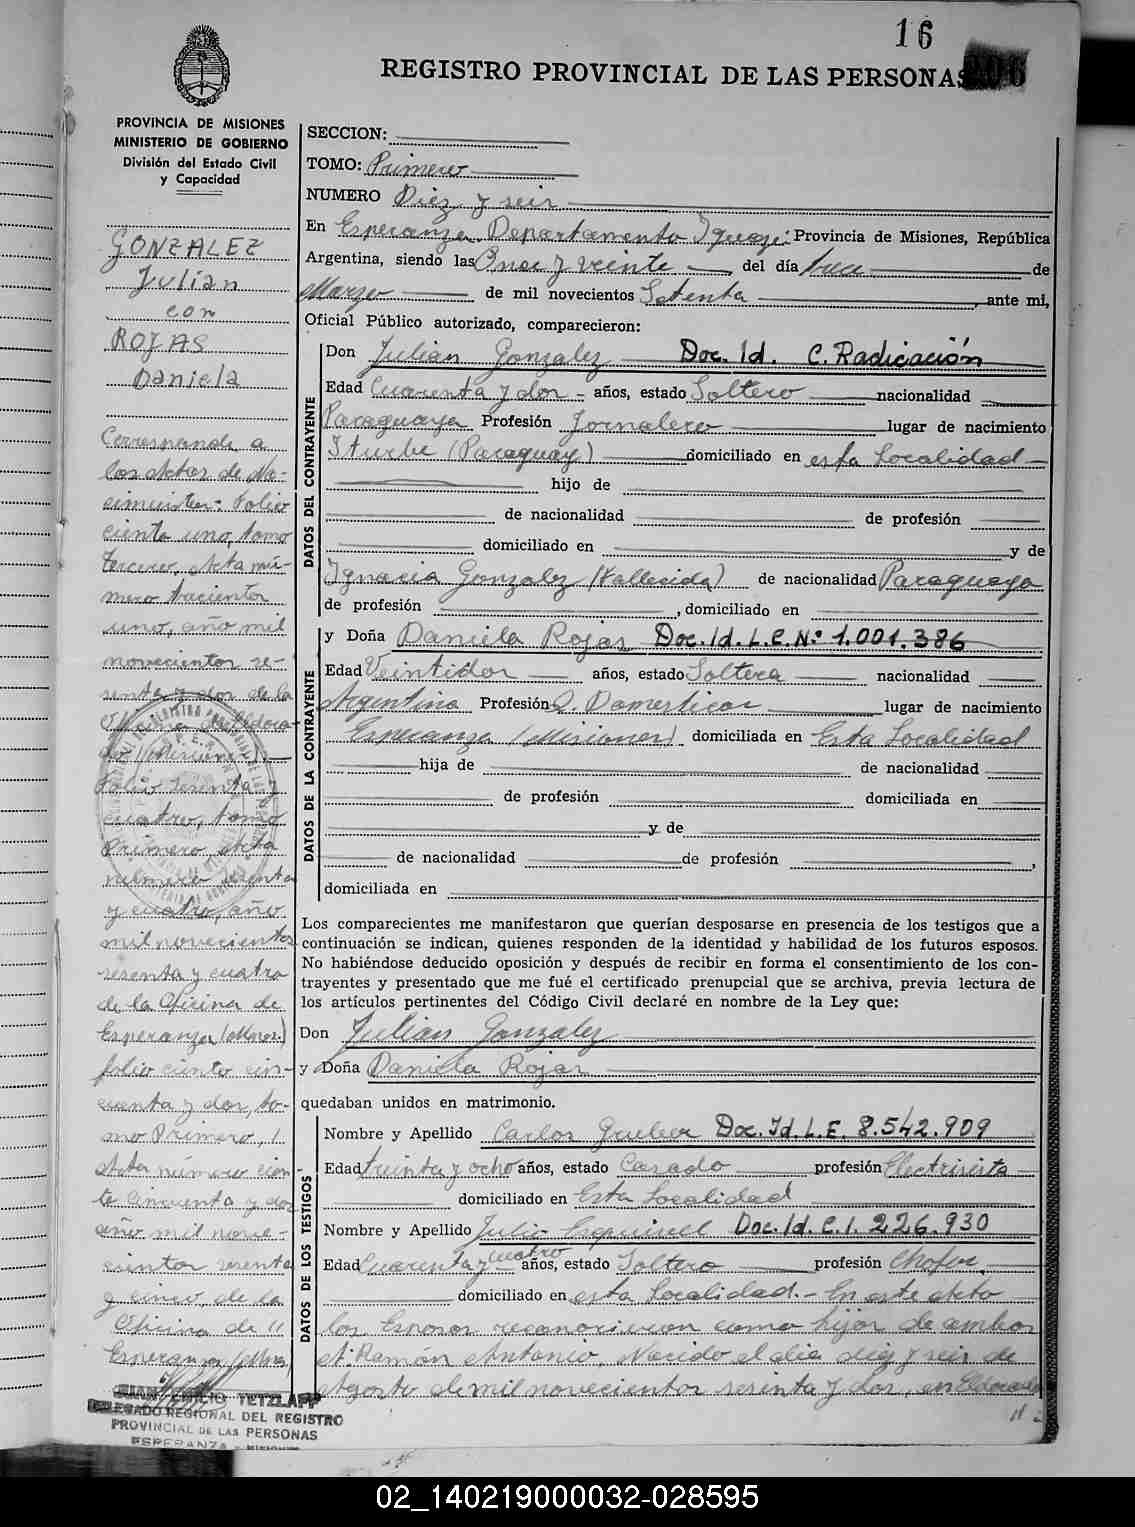 16
REGISTRO PROVINCIAL DE LAS PERSONAS
PROVINCIA DE MISIONES
MINISTERIO DE GOBIERNO
División del Estado Civil
y Capacidad
GONZALEZ
Julian
con
ROJAS
Daniela
Corresponde a
los Actos de Na-
cimientos: Folio
ciento uno, tomo
tercero, Acta nú-
mero trescientos
uno, año mil
novecientos se-
senta y dos de la
Folio sesenta y
cuatro, tomo
Primero, Acta
número sesenta
y cuatro, año
mil novecientos
sesenta y cuatro
de la Oficina de
Esperanza (Mnes.)
folio ciento cin-
cuenta y dos, to-
mo Primero,
Acta número cien-
to cincuenta y dos
año mil nove-
cientos sesenta
y cinco, de la
Oficina de
Esperanza (Mnes.
JUAN EMILIO TETZLAFF
DELEGADO REGIONAL DEL REGISTRO
PROVINCIAL DE LAS PERSONAS
ESPERANZA - MISIONES
SECCION:
TOMO: Primero
NUMERO Diez y seis
En Esperanza Departamento Iguazú: Provincia de Misiones, República
Argentina, siendo las Once y veinte del día trece de
Marzo de mil novecientos Setenta, ante mi,
Oficial Público autorizado, comparecieron:
DATOS DEL CONTRAYENTE
Don Julian Gonzalez Doc. Id. C. Radicación
Edad Cuarenta y dos - años, estado Soltero nacionalidad
Paraguaya Profesión Jornalero lugar de nacimiento
Iturbe (Paraguay) domiciliado en esta Localidad
hijo de
de nacionalidad de profesión
domiciliado en y de
Ignacia Gonzalez (Fallecida) de nacionalidad Paraguaya
de profesión , domiciliado en
DATOS DE LA CONTRAYENTE
y Doña Daniela Rojas Doc. Id. L.C. N.º 1.001.386
Edad Veintidos años, estado Soltera nacionalidad
Argentina Profesión Q. Domesticos lugar de nacimiento
Esperanza (Misiones) domiciliada en Esta Localidad
hija de de nacionalidad
de profesión domiciliada en
y de
de nacionalidad de profesión ,
domiciliada en
Los comparecientes me manifestaron que querían desposarse en presencia de los testigos que a
continuación se indican, quienes responden de la identidad y habilidad de los futuros esposos.
No habiéndose deducido oposición y después de recibir en forma el consentimiento de los con-
trayentes y presentado que me fué el certificado prenupcial que se archiva, previa lectura de
los artículos pertinentes del Código Civil declaré en nombre de la Ley que:
Don Julian Gonzalez
y Doña Daniela Rojas
quedaban unidos en matrimonio.
DATOS DE LOS TESTIGOS
Nombre y Apellido Carlos Gruber Doc. Id. L.E. 8.542.909
Edad treinta y ocho años, estado Casado profesión Electricista
domiciliado en Esta Localidad
Nombre y Apellido Julio Esquivel Doc. Id. C.I. 226.930
Edad Cuarenta y cuatro años, estado Soltero profesión Chofer.
domiciliado en esta Localidad.- En este acto
los Esposos reconocieron como hijos de ambos
A: Ramón Antonio, Nacido el día diez y seis de
Agosto de mil novecientos sesenta y dos, en Eldorado
02_140219000032-028595